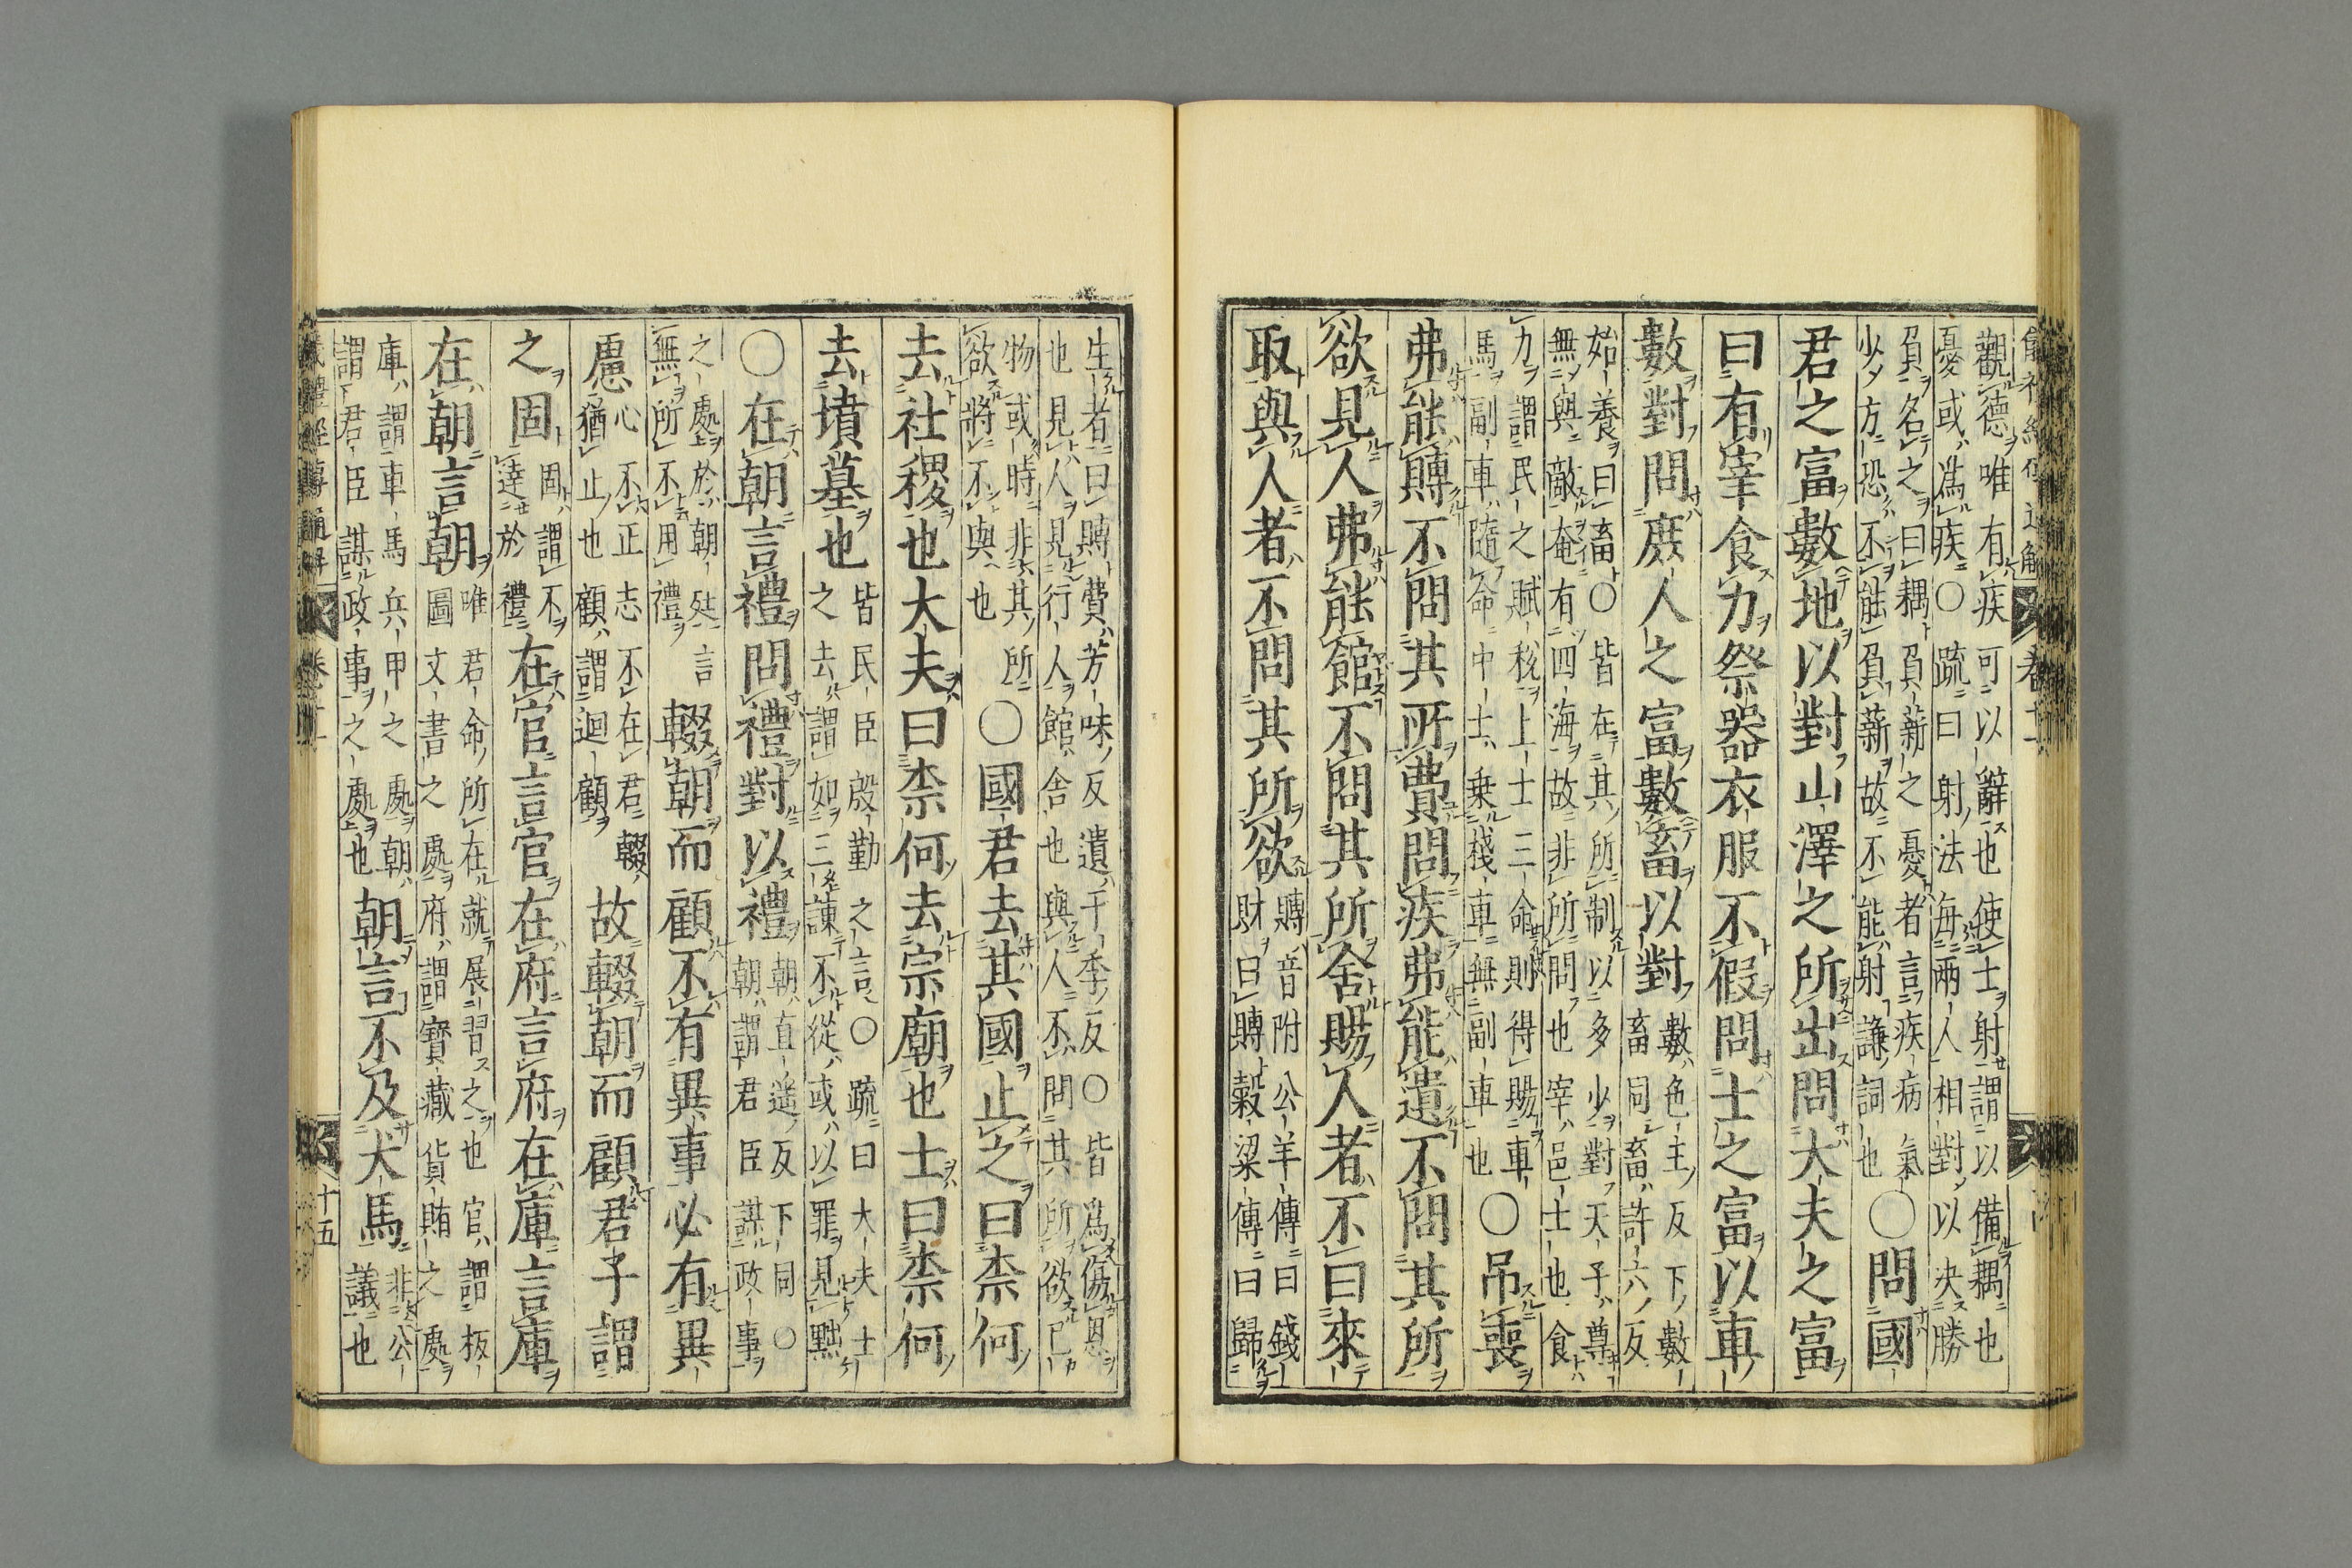 觀德唯有疾可以辭也使士射謂以備耦也
憂或爲疾○疏曰射法海兩人相對以决勝
負名之曰耦負薪之憂者言疾病氣
少方恐不能負薪故不能射謙詞也
○問國
君之富數地以對山澤之所出問大夫之富
曰有宰食力祭器衣服不假問士之富以車
數對問庶人之富數畜以對
數色主反下數
畜同畜許六反
始養曰畜○皆在其所制以多少對天子尊
無與敵奄有四海故非所問也宰邑士也食
力謂民之賦稅上士三命則得賜車
馬副車隨命中士乗棧車無副車也
○吊喪
弗能賻不問其所費問疾弗能遺不問其所
欲見人弗能館不問其所舍賜人者不曰來
取與人者不問其所欲
賻音附公羊傳曰錢
財曰賻穀梁傳曰歸
生者曰賻費芳味反遺于季反○皆爲傷恩
也見人見行人館舍也與人不問其所欲已
物或時非其所
欲將不與也
○國君去其國止之曰柰何
去社稷也大夫曰柰何去宗廟也士曰柰何
去墳墓也
皆民臣殷勤之言○疏曰大夫士
之去謂如三諫不從或以罪見黜
○在朝言禮問禮對以禮
朝直遥反下同○
朝謂君臣謀政事
之處於朝廷言
無所不用禮
輟朝而顧不有異事必有異
慮
心不正志不在君輟
猶止也顧謂迴顧
故輟朝而顧君子謂
之固
固謂不
達於禮
在官言官在府言府在庫言庫
在朝言朝
唯君命所在就展習之也官謂板
圖文書之處府謂寳藏貨賄之處
庫謂車馬兵甲之處朝
謂君臣謀政事之處也
朝言不及犬馬
非公
議也
儀禮經傳通解
十五